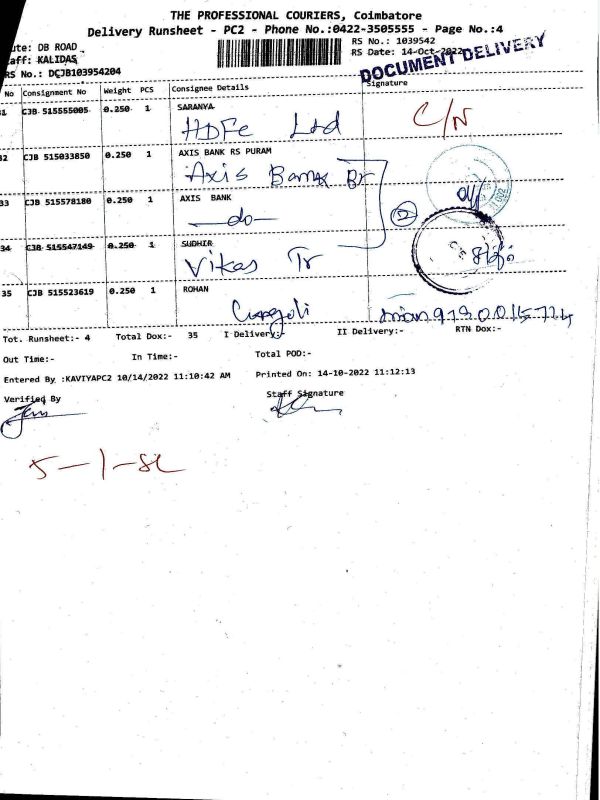 THE PROFESSIONAL COURIERS, Coimbatore
Delivery Runsheet - PC2 - Phone No.:0422-3505555 - Page No.:4
ute: DB ROAD
RS No.: 1039542
aff: KALIDAS
RS Date: 14-Oct-2022
RS No.: DCJB103954204
DOCUMENT DELIVERY
No Consignment No Weight PCS Consignee Details Signature
31 CJB 515555005 0.250 1 SARANYA
HDFC Ltd
C/N
32 CJB 515033850 0.250 1 AXIS BANK RS PURAM
Axis Bank Br
33 CJB 515578180 0.250 1 AXIS BANK
—do—
2
34 CJB 515547149 0.250 1 SUDHIR
Vikas Tr
35 CJB 515523619 0.250 1 ROHAN
Tot. Runsheet:- 4 Total Dox:- 35 I Delivery:- II Delivery:- RTN Dox:-
Out Time:- In Time:- Total POD:-
Entered By :KAVIYAPC2 10/14/2022 11:10:42 AM Printed On: 14-10-2022 11:12:13
Verified By Staff Signature